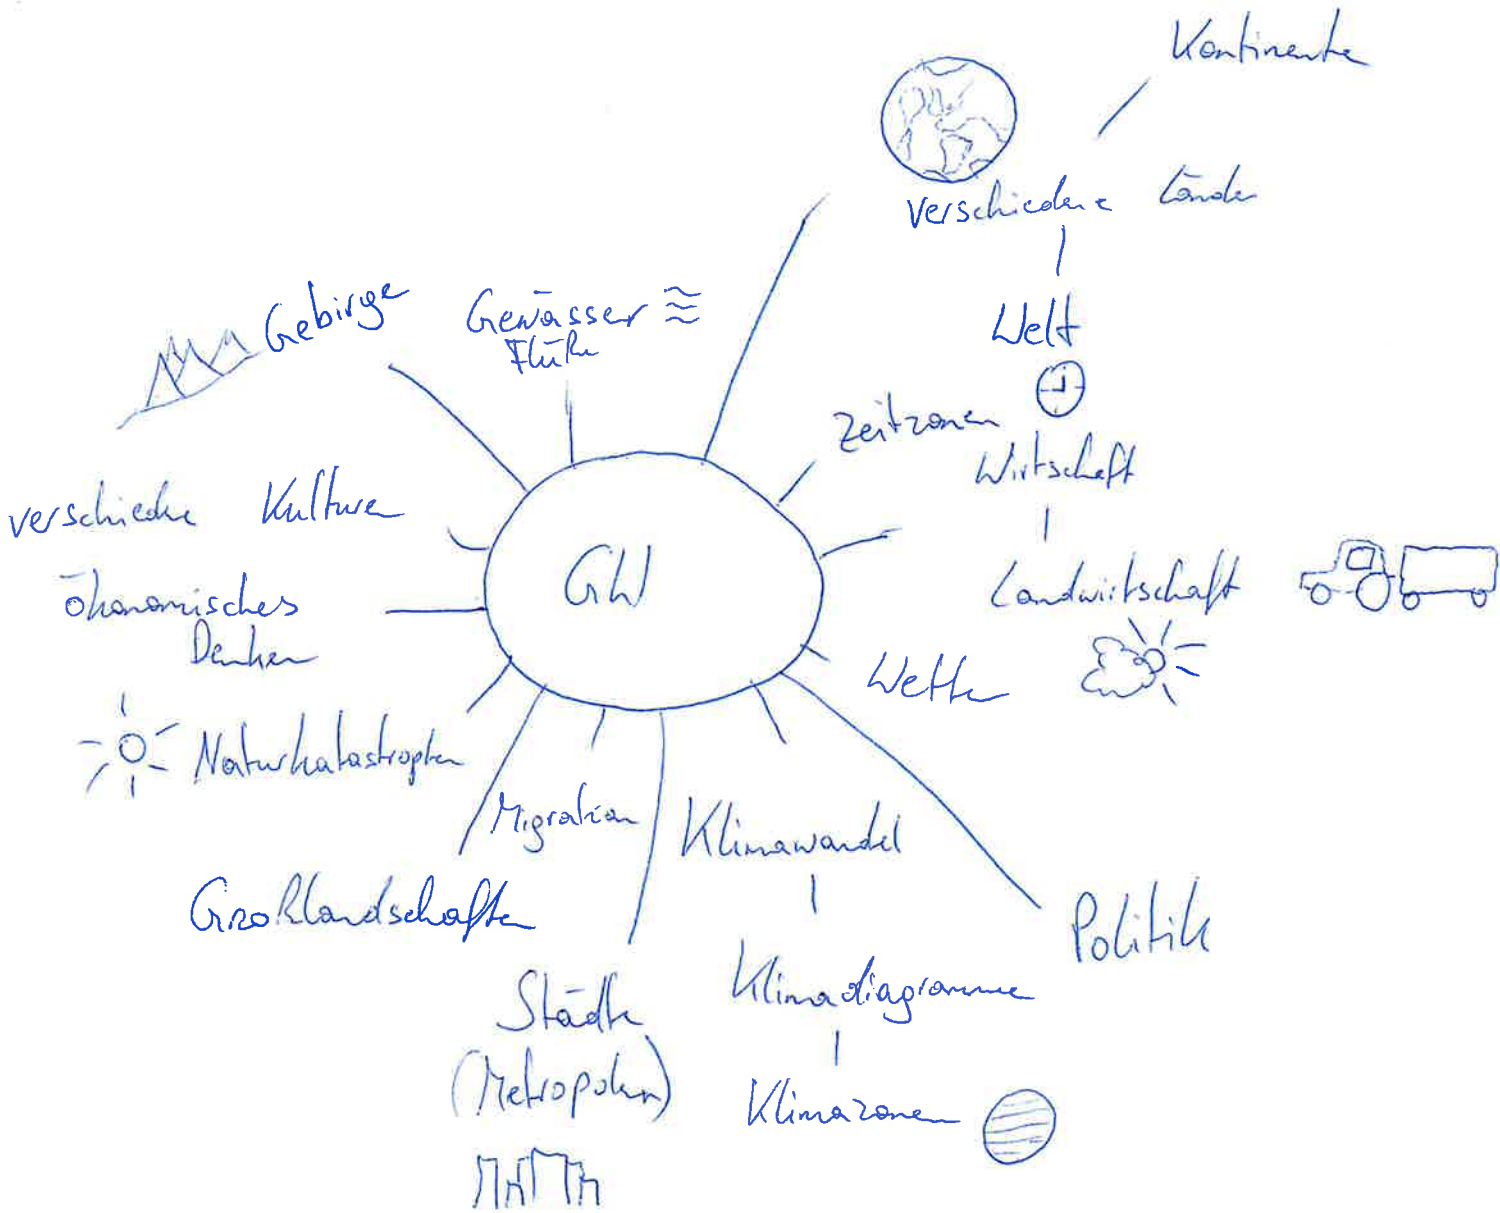 Kontinente
verschiedene Länder
Welt
Gebirge
Gewässer
Flüße
Zeitzonen
Wirtschaft
Landwirtschaft
verschiedne Kulturen
GW
ökonomisches
Denken
Wetter
Naturkatastrophen
Migration
Klimawandel
Großlandschaften
Politik
Klimadiagramme
Städte
(Metropolen)
Klimazonen